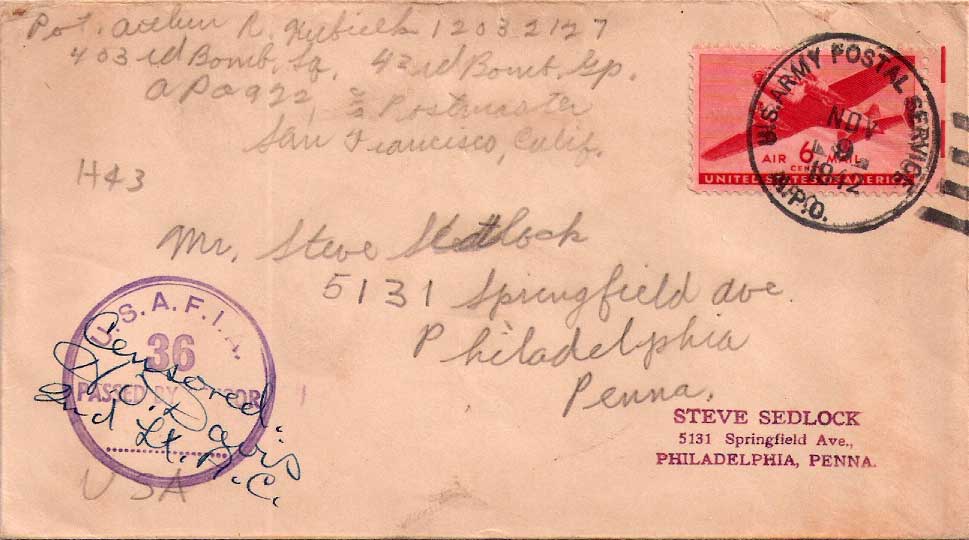 Pvt. Arthur R. Kubicek 12032127
403rd Bomb. Sq. 43rd Bomb. Gp.
APO 922, c/o Postmaster
San Francisco, Calif.
H43
AIR 6 MAIL
CENTS
UNITED STATES OF AMERICA
U.S. ARMY POSTAL SERVICE
NOV
9
1942
A.P.O.
Mr. Steve Sedlock
5131 Springfield Ave.
Philadelphia
Penna.
U.S.A.F.I.A.
36
PASSED BY CENSOR
Censored.
Davis
2nd Lt. A.C.
USA
STEVE SEDLOCK
5131 Springfield Ave.,
PHILADELPHIA, PENNA.